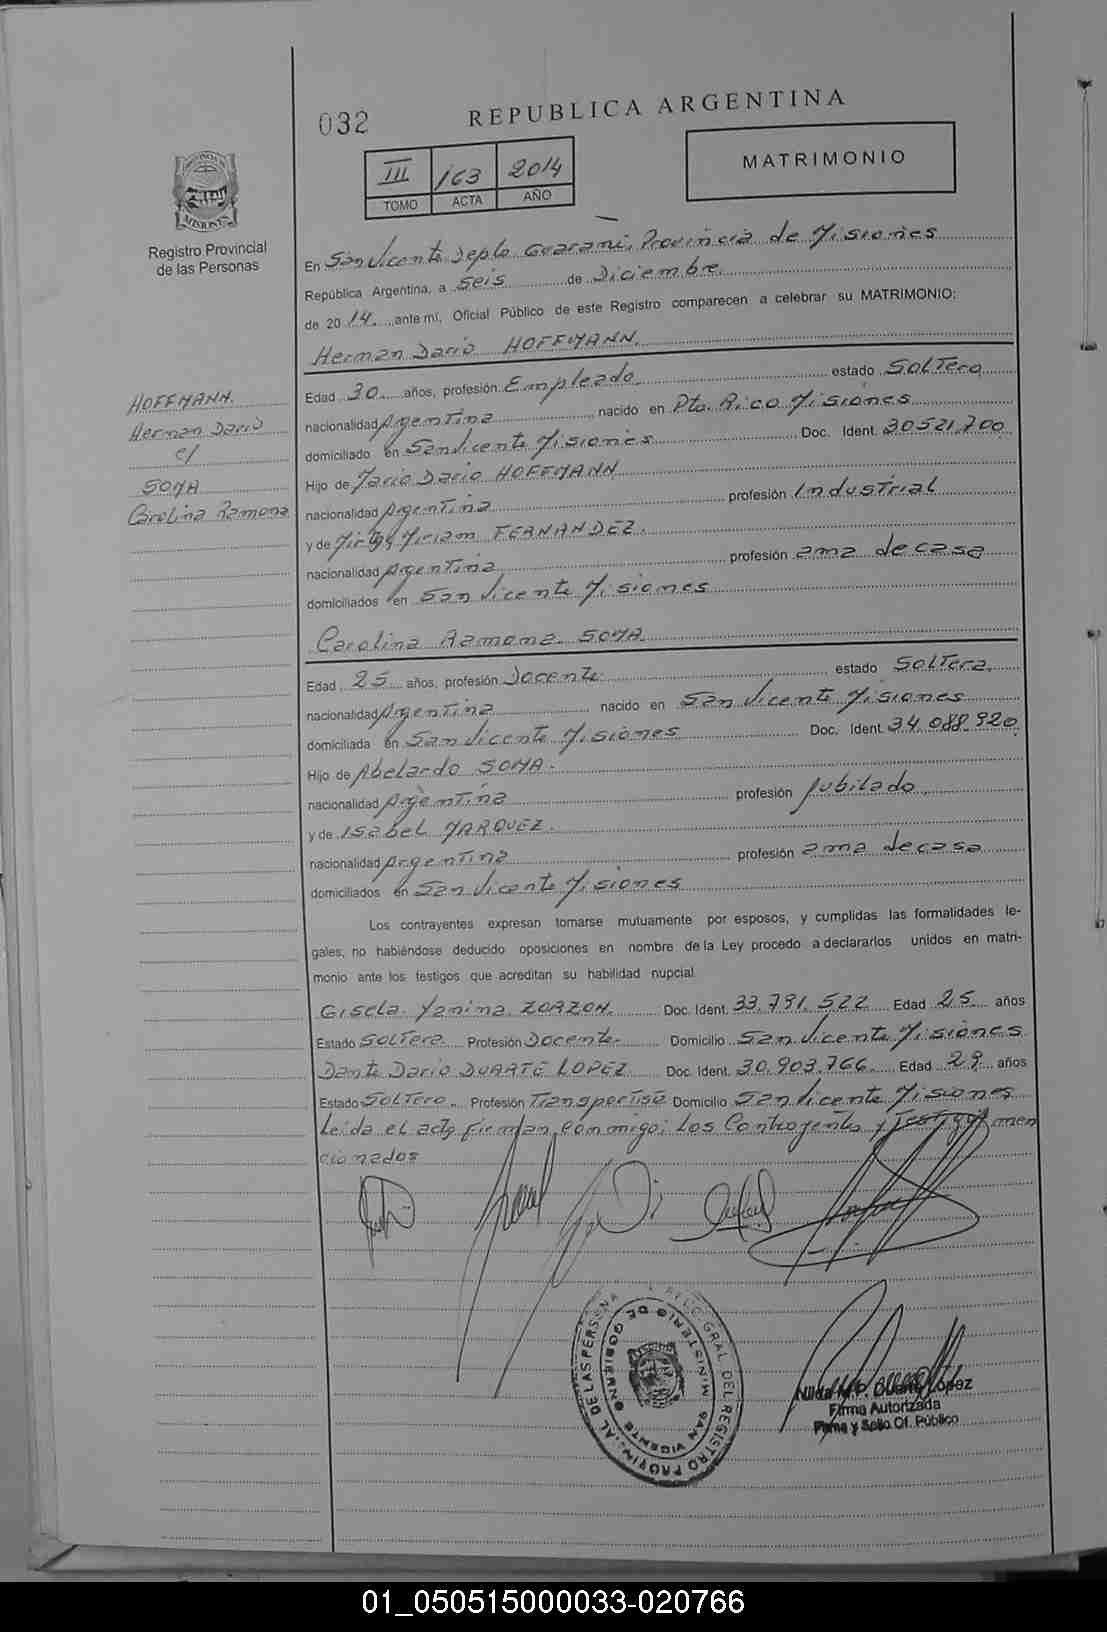 032
REPUBLICA ARGENTINA
III 163 2014
TOMO ACTA AÑO
MATRIMONIO
Registro Provincial
de las Personas
En San Vicente Depto Guarani, Provincia de Misiones
República Argentina, a seis de Diciembre
de 2014. ante mí, Oficial Público de este Registro comparecen a celebrar su MATRIMONIO:
Herman Dario HOFFMANN.
HOFFMANN.
Herman Dario
c/
SOMA
Carolina Ramona
Edad 30 años, profesión Empleado estado Soltero
nacionalidad Argentina nacido en Pto. Rico Misiones
domiciliado en San Vicente Misiones Doc. Ident. 30521.700
Hijo de Mario Dario HOFFMANN
nacionalidad Argentina profesión Industrial
y de Mirta Miriam FERNANDEZ.
nacionalidad Argentina profesión ama de casa
domiciliados en San Vicente Misiones
Carolina Ramona SOMA
Edad 25 años, profesión Docente estado Soltera
nacionalidad Argentina nacido en San Vicente Misiones
domiciliada en San Vicente Misiones Doc. Ident. 34.088.920
Hijo de Abelardo SOMA.
nacionalidad Argentina profesión Jubilado
y de Isabel MARQUEZ.
nacionalidad Argentina profesión ama de casa
domiciliados en San Vicente Misiones
Los contrayentes expresan tomarse mutuamente por esposos, y cumplidas las formalidades le-
gales, no habiéndose deducido oposiciones en nombre de la Ley procedo a declararlos unidos en matri-
monio ante los testigos que acreditan su habilidad nupcial.
Gisela Yanina ZORZON. Doc. Ident. 33.791.522 Edad 25 años
Estado Soltera Profesión Docente Domicilio San Vicente Misiones
Dante Dario DUARTE LOPEZ Doc. Ident. 30.903.766 Edad 29 años
Estado Soltero. Profesión Transportista Domicilio San Vicente Misiones
Leida el acta firman conmigo; los Contrayentes y Testigos men
cionados
GRAL. DEL REGISTRO PROVINCIAL DE LAS PERSONAS
MINISTERIO DE GOBIERNO
SAN VICENTE
Nilda M.P. Duarte López
Firma Autorizada
Firma y Sello Of. Público
01_050515000033-020766